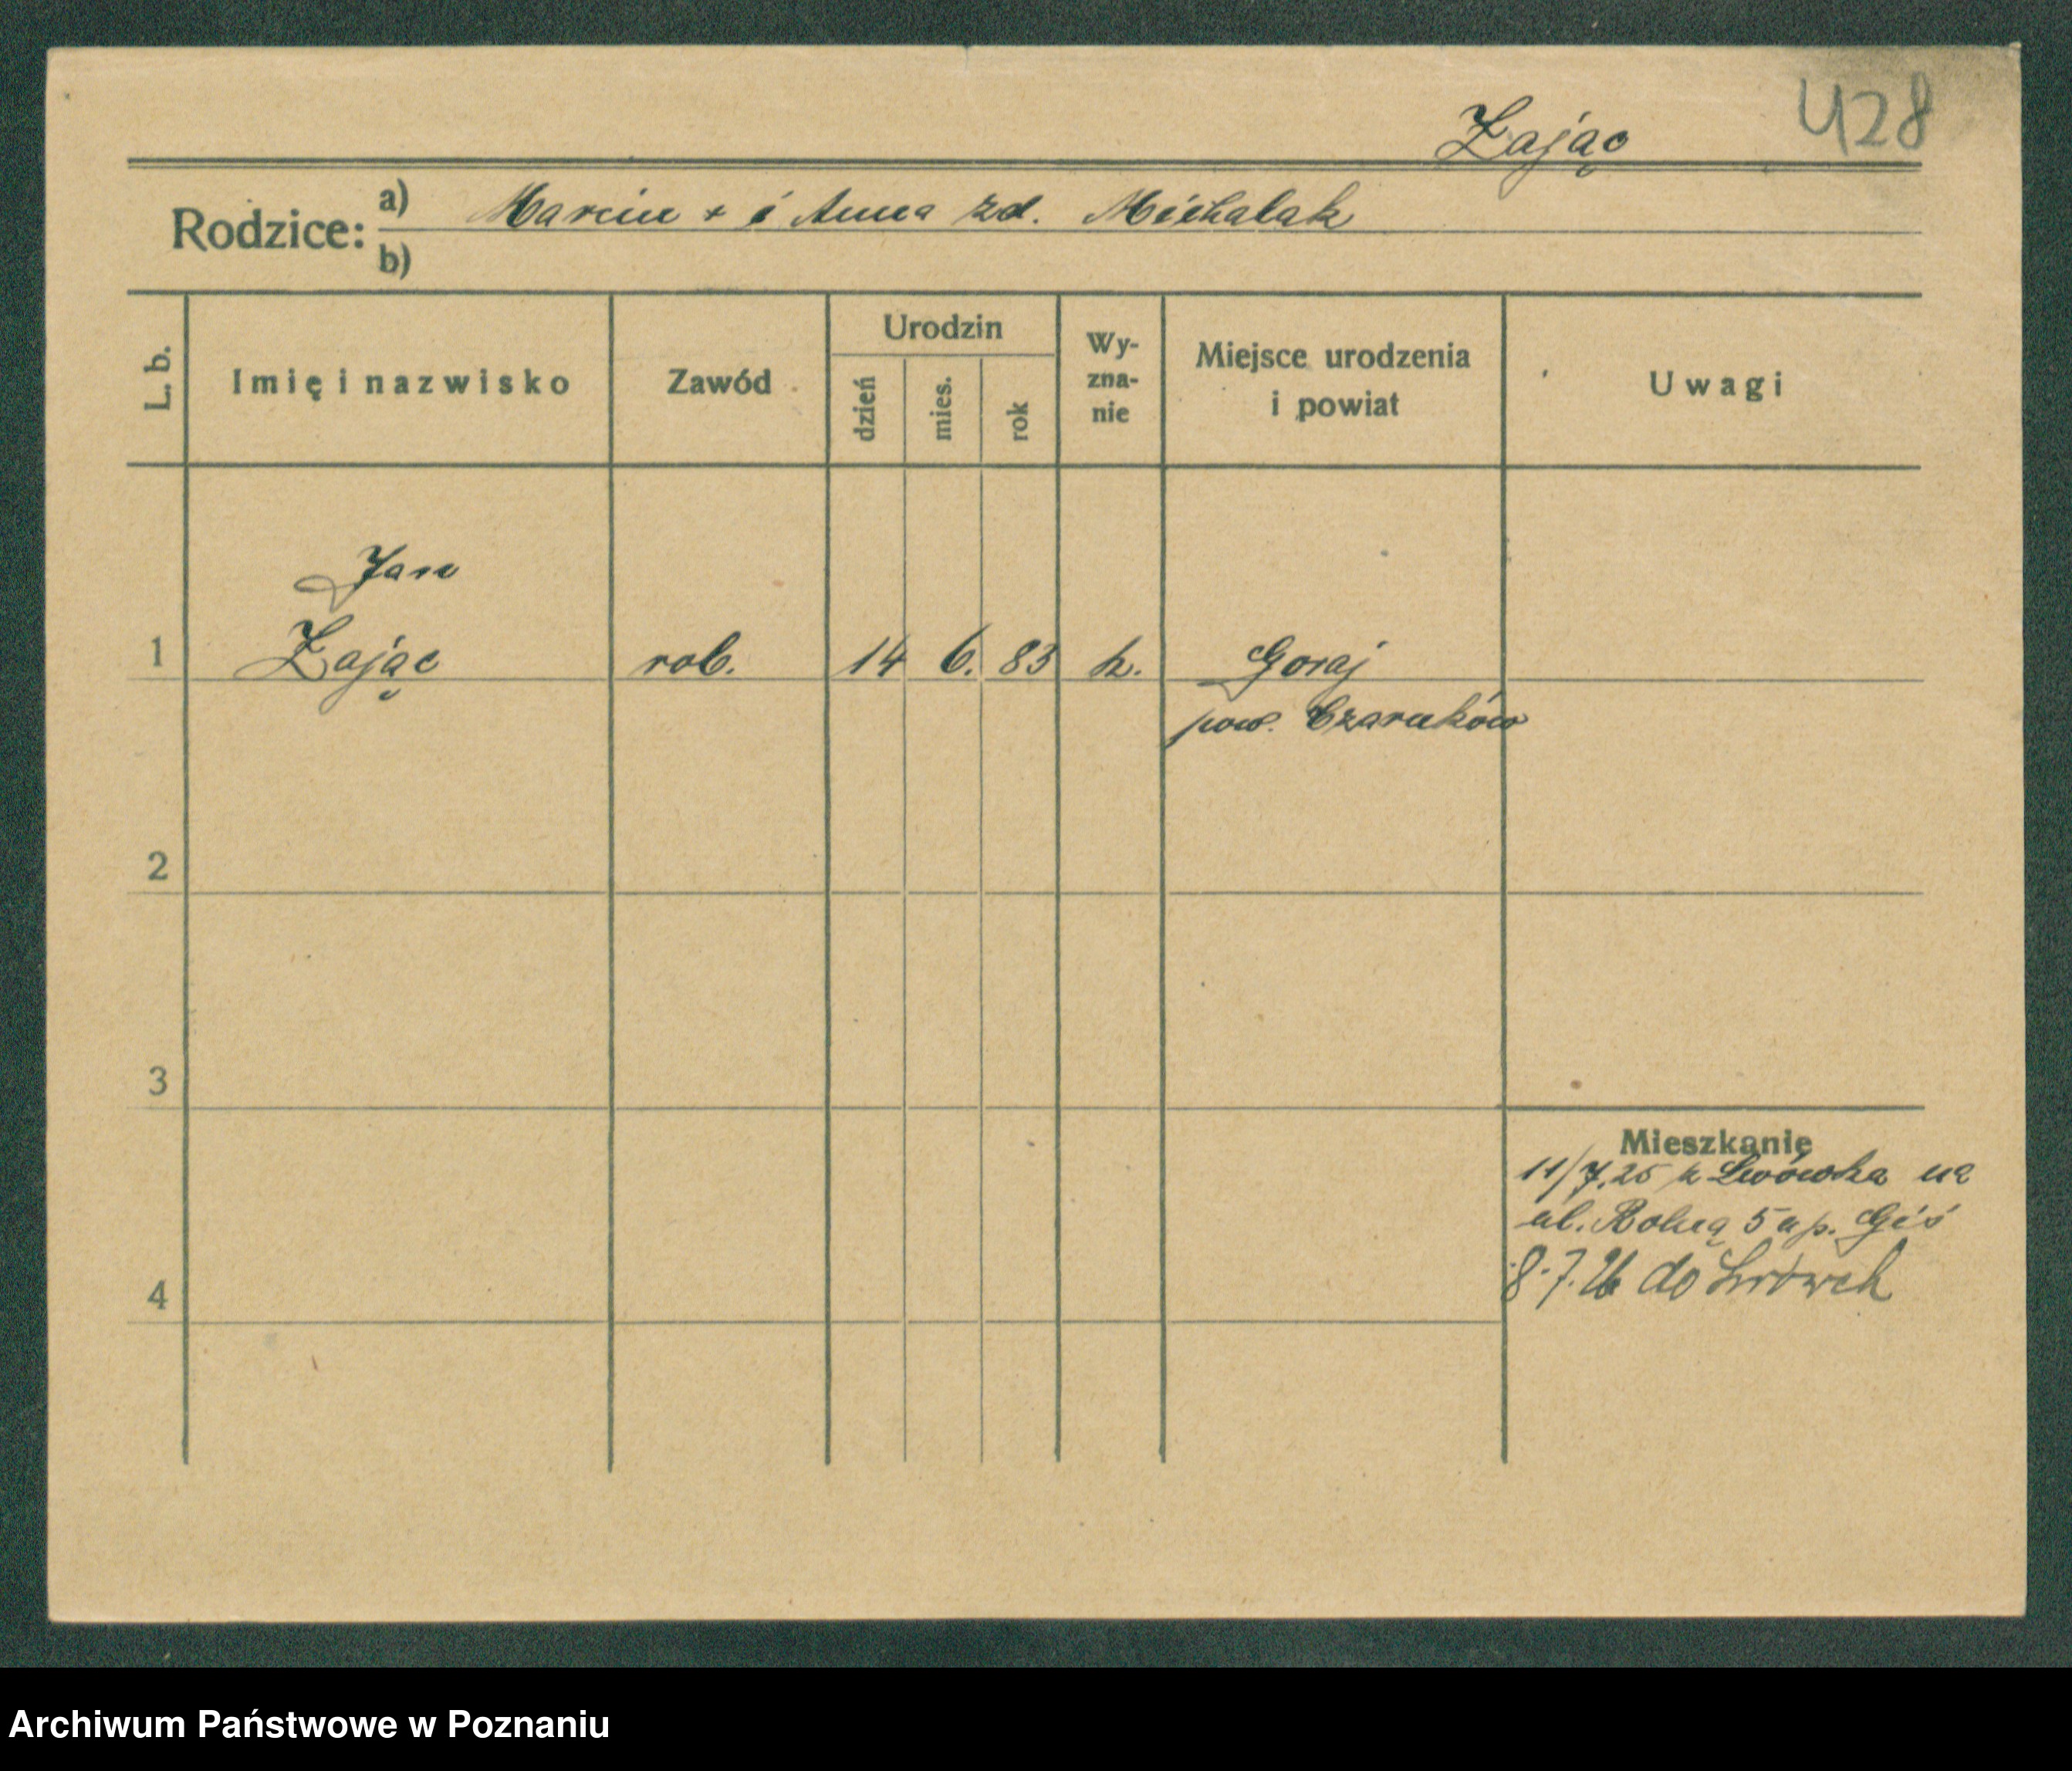 428
Zając
Rodzice: a) Marcin + i Anna zd. Michalak
b)
L. b. Imię i nazwisko Zawód Urodzin dzień mies. rok Wy-zna-nie Miejsce urodzenia i powiat Uwagi
Jan
1 Zając rob. 14 6. 83 k. Goraj
pow. Czarnków
2
3
Mieszkanie
11/7.25 z Lwówka na
ul. Rolną 5 u p. Giś
4 8.7.26 do Lwówek
Archiwum Państwowe w Poznaniu